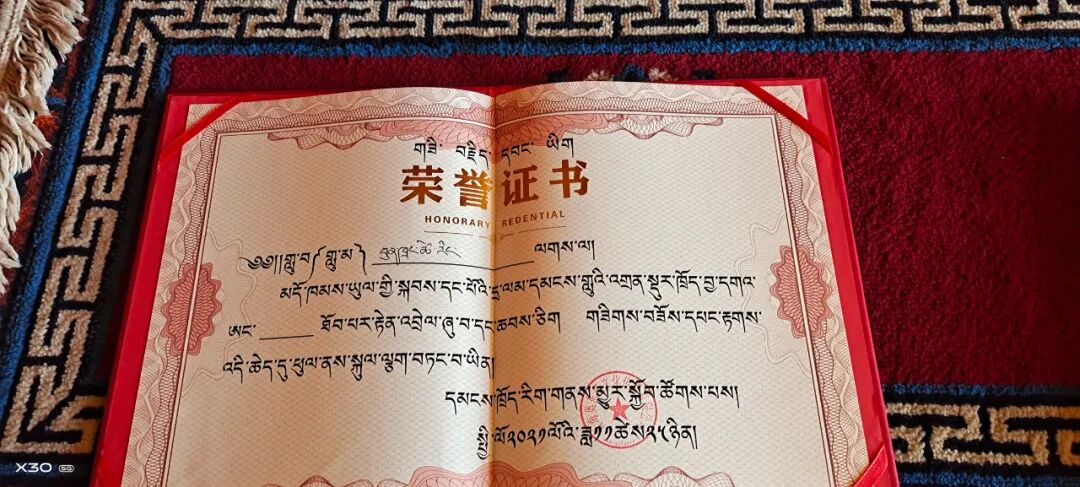 གཟི་ བརྗིད་ དབང་ ཡིག
荣誉证书
HONORARY CREDENTIAL
༄༅།།གླུ་བ/གླུ་མ་) ཚེ་རིང་ ལགས་ལ།
མདོ་ཁམས་ཡུལ་གྱི་སྐབས་དང་པོའི་དྲ་ལམ་དམངས་གླུའི་འགྲན་སྡུར་ཁྲོད་བྱ་དགའ་
ཨང་ ཐོབ་པར་རྟེན་འབྲེལ་ཞུ་བ་དང་ཆབས་ཅིག གཟིགས་བཟོས་དཔང་རྟགས་
འདི་ཆེད་དུ་ཕུལ་ནས་སྐུལ་ལྕག་བཏང་བ་ཡིན།
དམངས་ཁྲོད་རིག་གནས་མྱུར་སྐྱོབ་ཚོགས་པས།
སྤྱི་ལོ༢༠༢༡ལོའི་ཟླ༡༡ཚེས༢༥ཉིན།
X30 5G